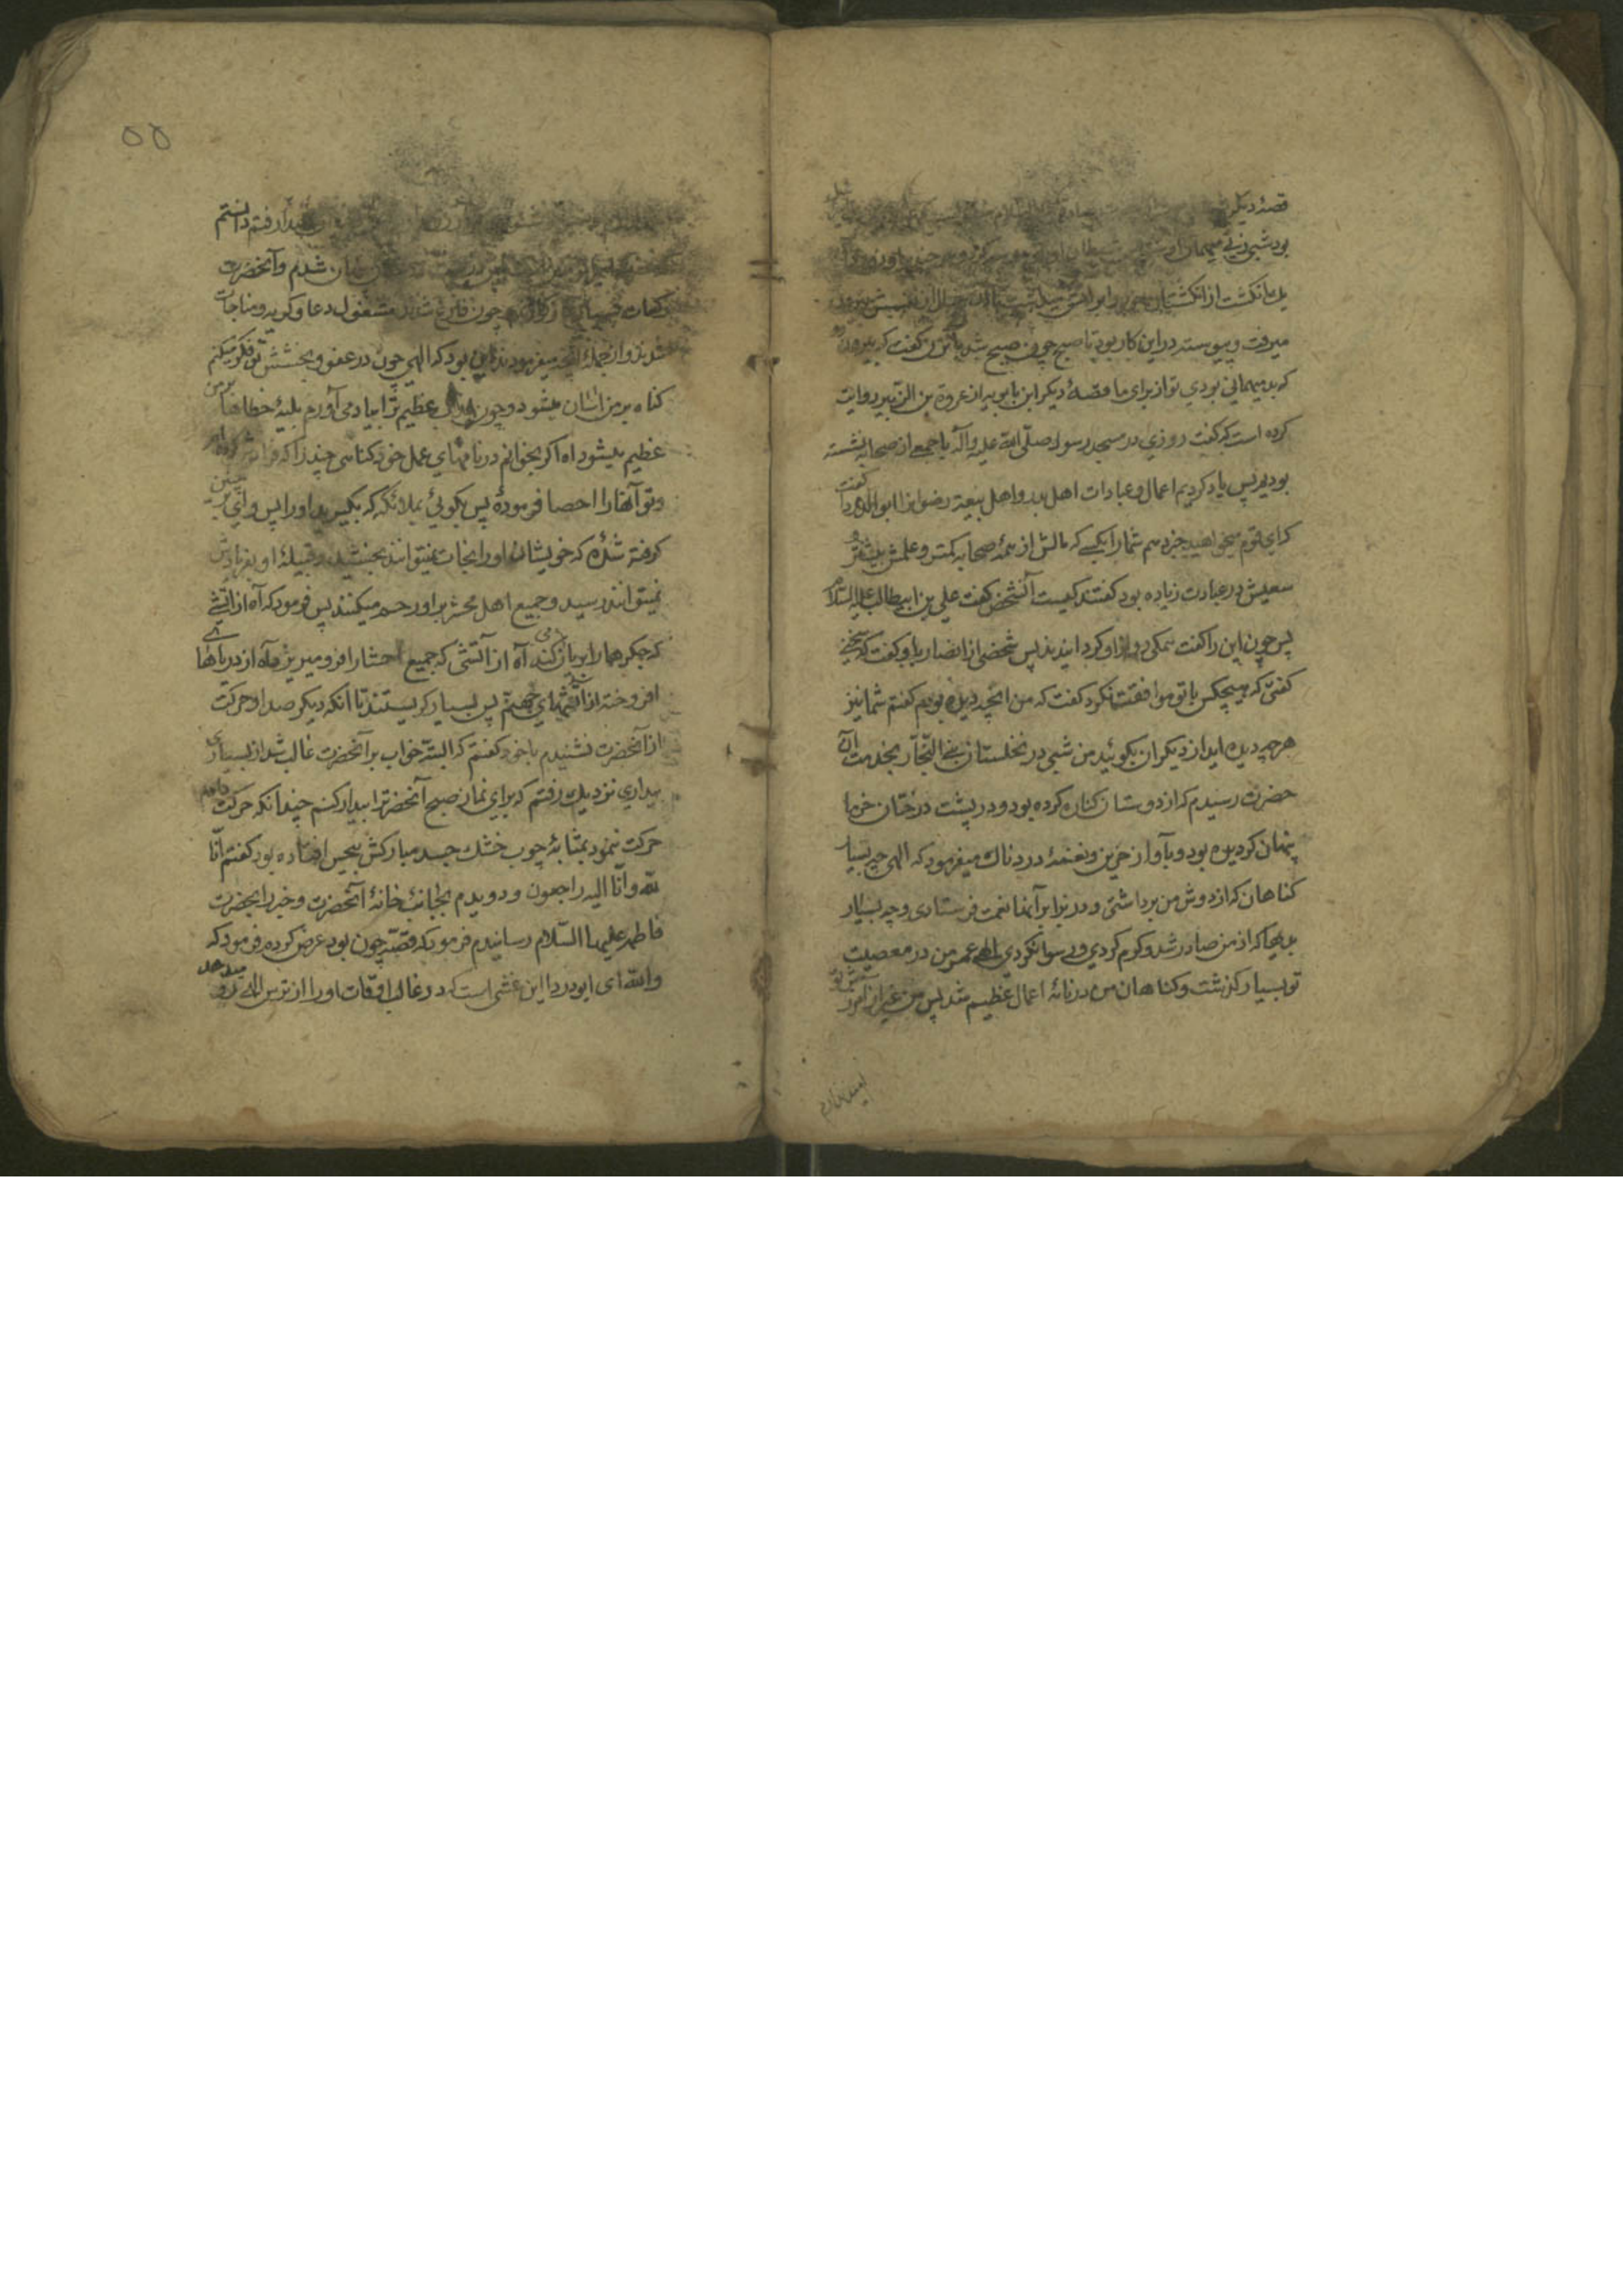 قصهٔ دیکر
بود شبی زنی میهمان او شد
یک انکشت از انکشتان خود را بر آتش میداشت تا آن خیال از نفسش بیرون
میرفت و پیوسته در این کار بود تا صبح چون صبح شد با آن زن کفت که بیرون رو
که بد میهمانی بودی تو از برای ما قصهٔ دیکر ابن بابویه از عروة بن الزبیر روایت
کرده است که کفت روزی در مسجد رسول صلّی الله علیه وآله با جمعی از صحابه نشسته
بودیم پس یاد کردیم اعمال و عبادات اهل بدر و اهل بیعة رضوانرا ابو الدردا کفت
که ای قوم میخواهید خبر دهم شما را بکسی که مالش از همهٔ صحابه کمتر و علمش بیشتر و
سعیش در عبادت زیاده بود کفتند کیست آنشخص کفت علی بن ابیطالب علیه السلام
پس چون این را کفت همکی رو از او کردانیدند پس شخصی از انصار باو کفت که سخنی
کفتی که هیچکس با تو موافقت نکرد کفت که من آنچه دیده بودم کفتم شما نیز
هر چه دیده اید از دیکران بکوئید من شبی در نخلستان بنی النجّار بخدمت آن
حضرت رسیدم که از دوستان کناره کرده بود و در پشت درختان خرما
پنهان کردیده بود و بآواز حزین و نغمهٔ دردناک میفرمود که الهی چه بسیار
کناهان که از دوش من برداشتی و در برابر آنها نعمت فرستادی و چه بسیار
بدیها که از من صادر شد و کرم کردی و رسوا نکردی الهی عمر من در معصیت
تو بسیار کذشت و کناهان من در نامهٔ اعمال عظیم شد پس من غیر از آمرزش تو
امید ندارم
۵۵
رفتم دانستم
شدم و آنحضرت
رکعات چون فارغ شدند مشغول دعا و کریه و مناجات
شدند و از جملهٔ آنچه میفرمودند این بود که الهی چون در عفو و بخشش تو فکر میکنم
کناه بر من آسان میشود و چون عذاب عظیم ترا بیاد می آورم بلیهٔ خطاها بر من
عظیم میشود آه اکر بخوانم در نامهای عمل خود کناهی چند را که فراموش کرده ام
و تو آنها را احصا فرمودهٔ پس بکوئی بملائکه که بکیرید او را پس وای بر چنین
کرفته شدهٔ که خویشان او را نجات نمیتوانند بخشید و قبیلهٔ او بفریادش
نمیتوانند رسید و جمیع اهل محشر بر او رحم میکنند پس فرمود که آه از آتشی
که جکرها را بریان می کند آه از آتشی که جمیع احشا را فرو میریزد آه از دریاهای
افروخته از آتشهای جهنّم پس بسیار کریستند تا آنکه دیکر صدا و حرکت
از آنحضرت نشنیدم با خود کفتم که البتّه خواب بر آنحضرت غالب شد از بسیاری
بیداری نزدیک رفتم که برای نماز صبح آنحضرترا بیدار کنم چندانکه حرکت دادم
حرکت ننمود بمثابهٔ چوب خشک جسد مبارکش بیحس افتاده بود کفتم انّا
لله وانّا الیه راجعون و دویدم بجانب خانهٔ آنحضرت و خبر را بحضرت
فاطمه علیها السّلام رسانیدم فرمود که قصّه چون بود عرض کردم فرمود که
والله ای ابودردا این غشی است که در غالب اوقات او را از ترس الهی رو میدهد